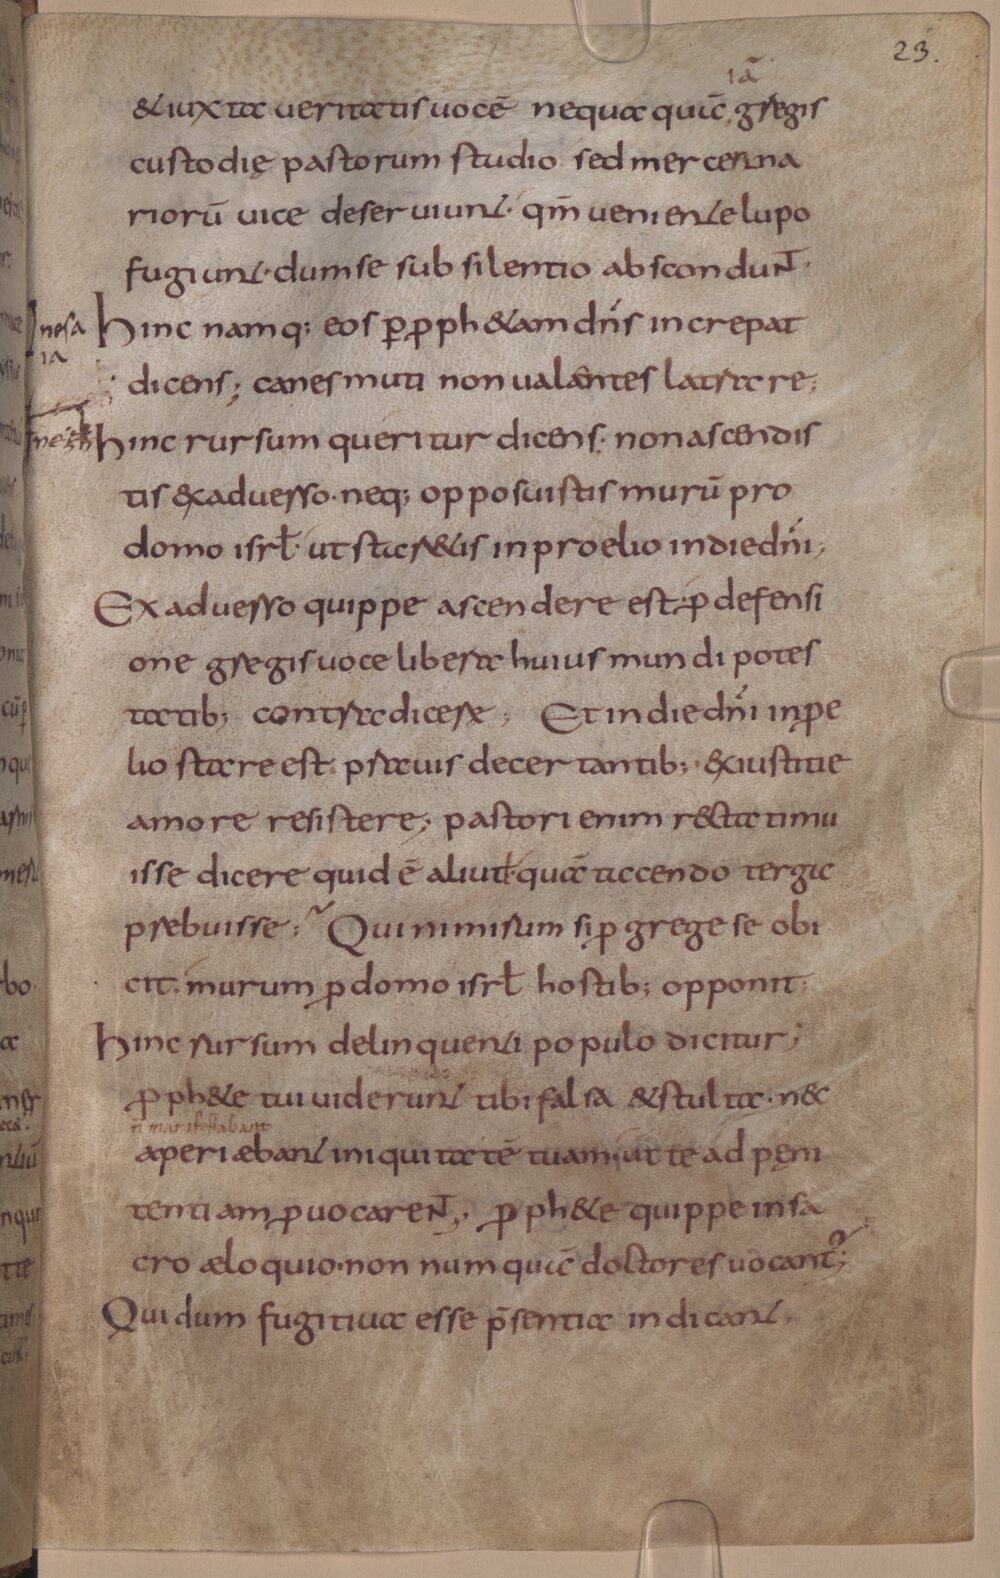 23.
iā
& iuxta ueritatis uocē nequaquā gregis
custodię pastorum studio sed mercenna
riorū uice deseruiunt· qm̄ ueniente lupo
fugiunt· dum se sub silentio abscondunt·
In esa
ia
Hinc namq; eos p̱ p̱ph&am dn̄s increpat
dicens; canes muti non ualentes latrare;
Hinc rursum queritur dicens; non ascendis
tis ex aduerso· neq; opposuistis murū pro
domo isrł· ut star&is in proelio in die dn̄i;
Ex aduerso quippe ascendere est· p̱ defensi
one gregis uoce libera huius mundi potes
tatib; contradicere; Et in die dn̄i in p̱e
lio stare est· prauis decertantib; &x iustitie
amore resistere; pastori enim r&cta timu
isse dicere quid ē aliut quā tacendo terga
prebuisse; Qui nimirum si p̱ grege se obi
cit· murum p̱ domo isrł hostib; opponit;
Hinc rursum delinquenti populo dicitur;
p̱ph&e tui uiderunt tibi falsa & stulta· nec
n̄ manifestabant
aperiæbant iniquitatē tuam· ut te ad pęni
tentiam p̱uocarent; p̱ph&e quippe in sa
cro æloquio· non numquā doctores uocant᷑;
Qui dum fugitiua esse p̄sentia indicant;